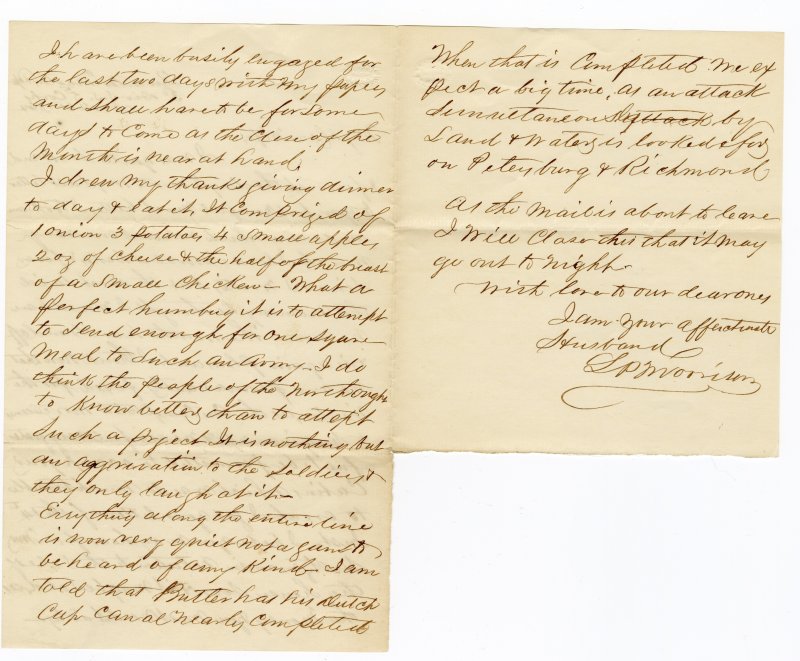 I have been busily engaged for
the last two days with my papers
and shall have to be for some
days to come as the close of the
month is near at hand.
I drew my thanksgiving dinner
to day & eat it. It comprized of
1 onion 3 potatoes 4 small apples
2 oz of cheese & the half of the breast
of a small chicken - What a
perfect humbug it is to attempt
to send enough for one square
meal to such an army - I do
think the people of the North ought
to know better than to attept
such a project It is nothing but
an aggrivation to the soldiers &
they only laugh at it -
Evrything along the entire line
is now very quiet not a gun to
be heard of any kind - I am
told that Butler has his Dutch
Cap Canal nearly completed
When that is completed we ex
pect a big time, as an attack
simultaneous attack by
Land & Water is looked for
on Petersburg & Richmond
As the mail is about to leave
I will close this that it may
go out to night -
With love to our dear ones
I am your affectionate
Husband
Morrison